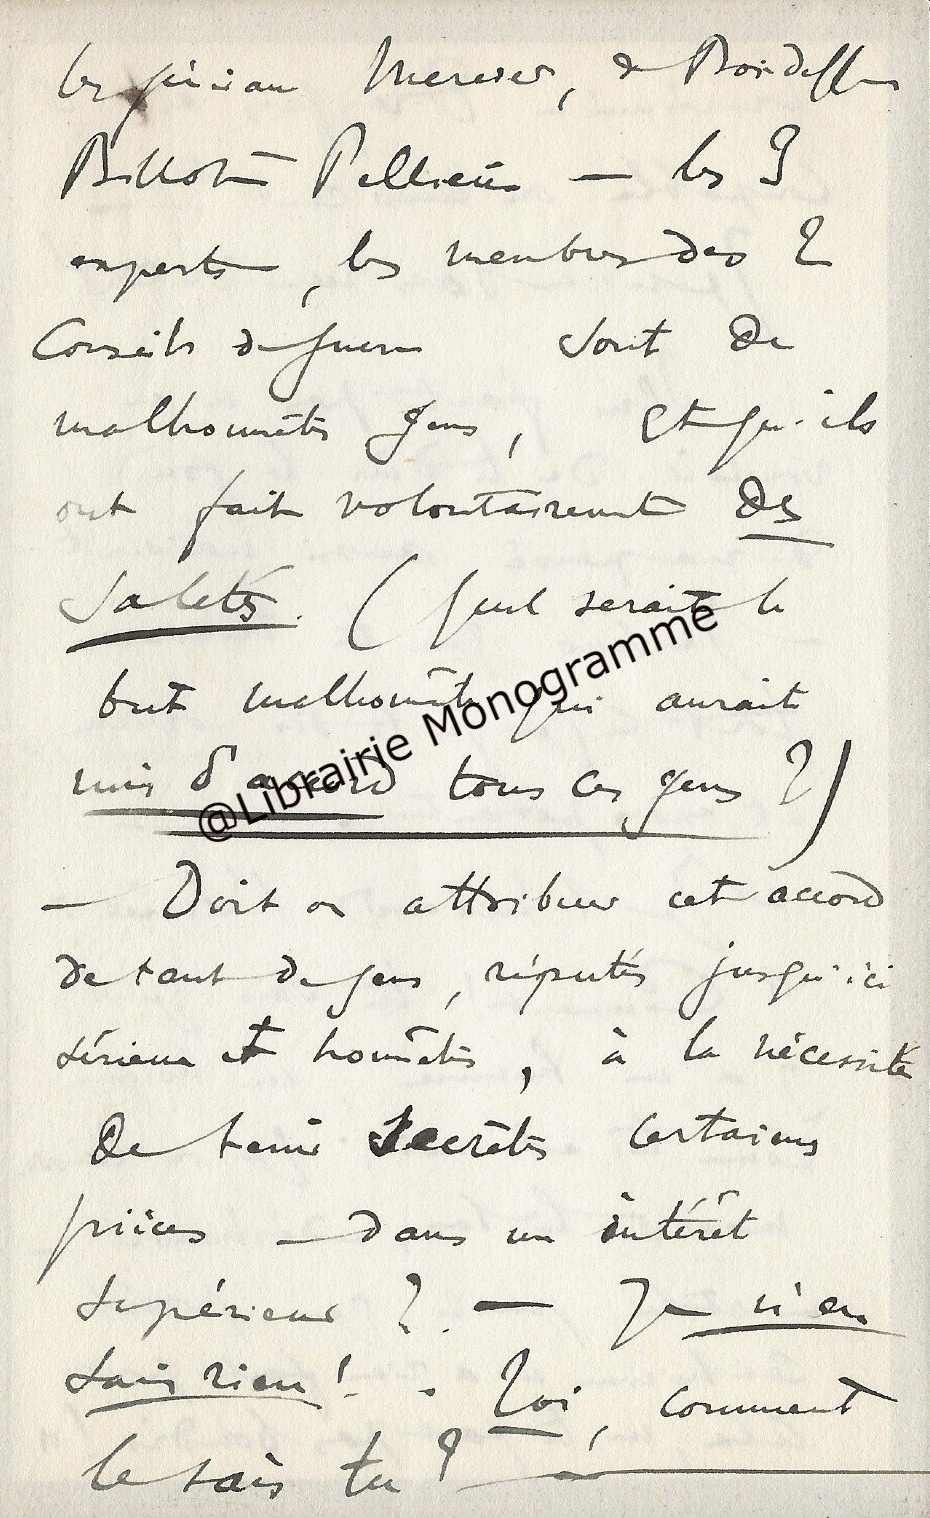 les généraux Mercier, de Boisdeffre
Billot Pellieux — les 3
experts, les membres des 2
Conseils de guerre sont de
malhonnêtes gens, et qu'ils
ont fait volontairement des
saletés. (quel serait le
but malhonnête qui aurait
mis d'accord tous ces gens ?)
— Doit on attribuer cet accord
de tant de gens, réputés jusqu'ici
sérieux et honnêtes, à la nécessité
de tenir secrètes certaines
pièces — dans un intérêt
supérieur ? — Je n'en
sais rien ! . Toi, comment
le sais tu ? —
@Librairie Monogramme